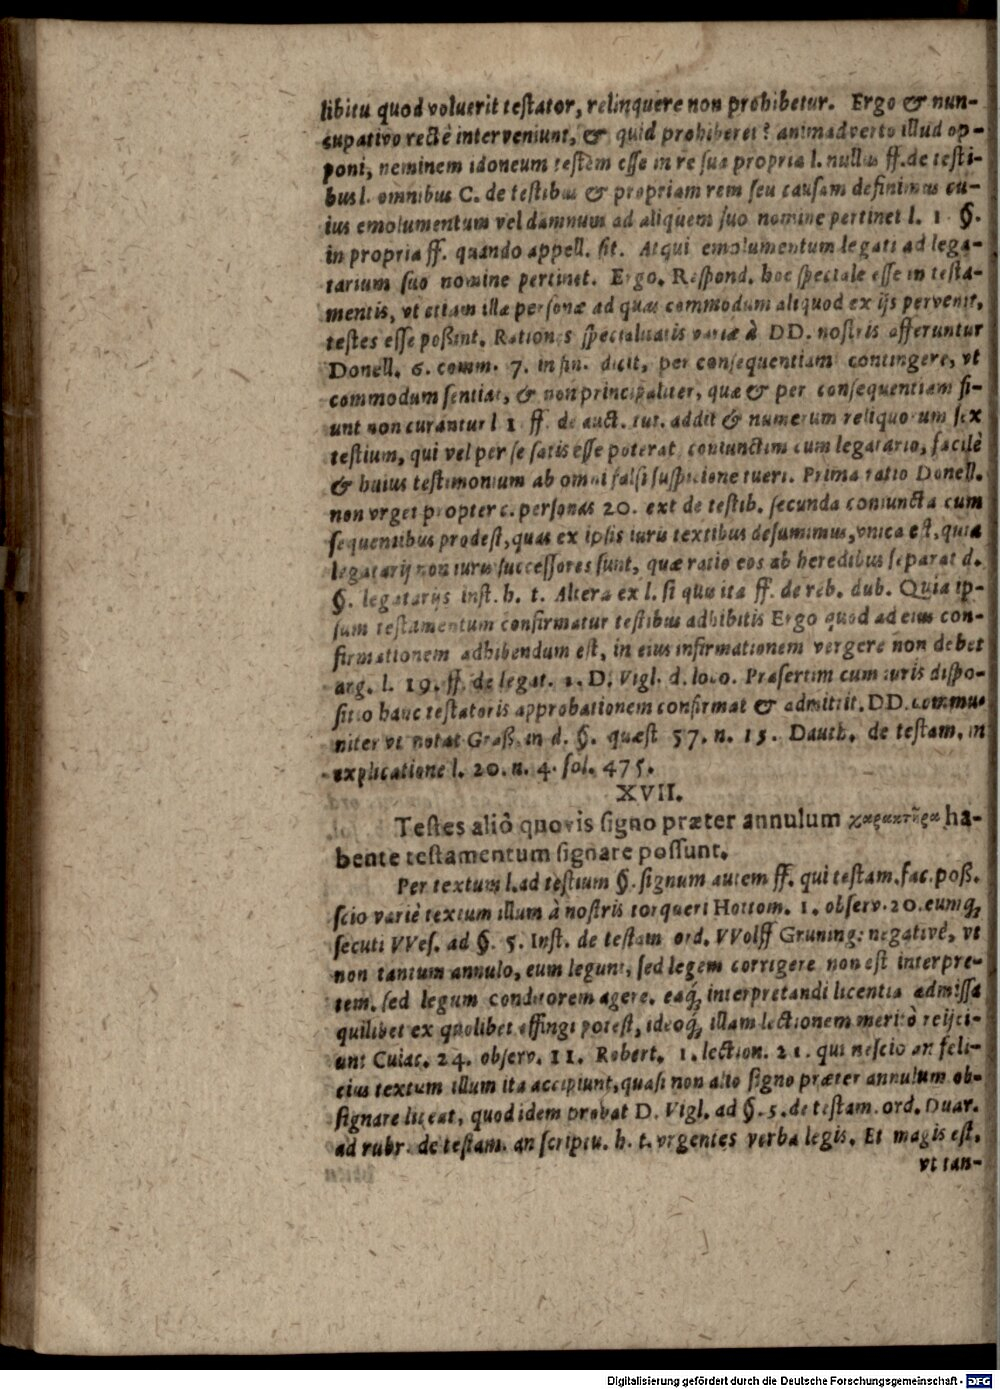 libitu quod voluerit testator, relinquere non prohibetur. Ergo & nun-
cupativo rectè interveniunt, & quid prohiberet? animadverto illud op-
poni, neminem idoneum testem esse in re sua propria l. nullus ff. de testi-
bus l. omnibus C. de testibus & propriam rem seu causam definimus cu-
ius emolumentum vel damnum ad aliquem suo nomine pertinet l. 1 §.
in propria ff. quando appell. sit. Atqui emolumentum legati ad lega-
tarium suo nomine pertinet. Ergo. Respond. hoc speciale esse in testa-
mentis, vt etiam illæ personæ ad quas commodum aliquod ex ijs pervenit,
testes esse poßint. Rationes specialitatis variæ à DD. nostris afferuntur
Donell. 6. comm. 7. in fin. dicit, per consequentiam contingere, vt
commodum sentiat, & non principaliter, quæ & per consequentiam fi-
unt non curantur l 1 ff. de auct. tut. addit & numerum reliquorum sex
testium, qui vel per se satis esse poterat coniunctim cum legatario, facilè
& huius testimonium ab omni falsi suspicione tueri. Prima ratio Donell.
non vrget propter c. personas 20. ext de testib. secunda coniuncta cum
sequentibus prodest, quas ex ipsis iuris textibus desumimus, vnica est, quia
legatarij non iuris successores sunt, quæ ratio eos ab heredibus separat d.
§. legatarijs inst. h. t. Altera ex l. si quis ita ff. de reb. dub. Quia ip-
sum testamentum confirmatur testibus adhibitis Ergo quod ad eius con-
firmationem adhibendum est, in eius infirmationem vergere non debet
arg. l. 19. ff. de legat. 1. D. Vigl. d. loco. Præsertim cum iuris dispo-
sitio hanc testatoris approbationem confirmat & admittit. DD. commu-
niter vt notat Graß. in d. §. quæst 57. n. 15. Dauth. de testam. in
explicatione l. 20. n. 4. fol. 475.
XVII.
Testes aliò quovis signo præter annulum χαρακτῆρα ha-
bente testamentum signare possunt.
Per textum l. ad testium §. signum autem ff. qui testam. fac. poß.
scio variè textum illum à nostris torqueri Hottom. 1. observ. 20. eumq́;
secuti VVes. ad §. 5. Inst. de testam ord. VVolff Gruning: negativè, vt
non tantum annulo, eum legunt, sed legem corrigere non est interpre-
tem, sed legum conditorem agere. eaq́; interpretandi licentia admissa
quilibet ex quolibet effingi potest, ideoq́; illam lectionem meritò reijci-
unt Cuiac. 24. observ. 11. Robert. 1. lection. 21. qui nescio an feli-
cius textum illum ita accipiunt, quasi non alio signo præter annulum ob-
signare liceat, quod idem probat D. Vigl. ad §. 5. de testam. ord. Duar.
ad rubr. de testam. an scriptu. h. t. vrgentes verba legis. Et magis est,
vt tan-
Digitalisierung gefördert durch die Deutsche Forschungsgemeinschaft - DFG